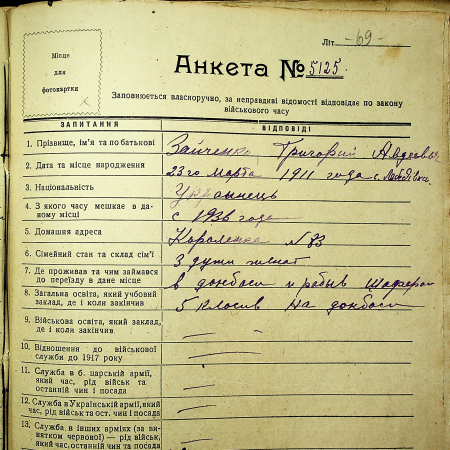 Літ. -69-
Місце
для
фотокартки
Анкета № 5125
Заповнюється власноручно, за неправдиві відомості відповідає по закону
військового часу
ЗАПИТАННЯ
ВІДПОВІДІ
1. Прізвище, ім'я та по батькові
Зайченко Григорий Авдеевич
2. Дата та місце народження
23го Марта 1911 года с.
3. Національність
Украынець
4. З якого часу мешкає в даному місці
с 1936 года
5. Домашня адреса
Короленка № 33
6. Сімейний стан та склад сім'ї
3 души женат
7. Де проживав та чим займався
до переїзду в дане місце
в донбаси и рабыв Шофером
8. Загальна освіта, який учбовий
заклад, де і коли закінчив
5 класив на донбаси
9. Військова освіта, який заклад,
де і коли закінчив
—
10. Відношення до військової
служби до 1917 року
—
11. Служба в б. царській армії,
який час, рід військ та
останній чин і посада
—
12. Служба в Українській армії, який
час, рід військ та ост. чин і посада
—
13. Служба в інших арміях (за ви-
нятком червоної) — рід військ,
який час, останній чин та посада
—